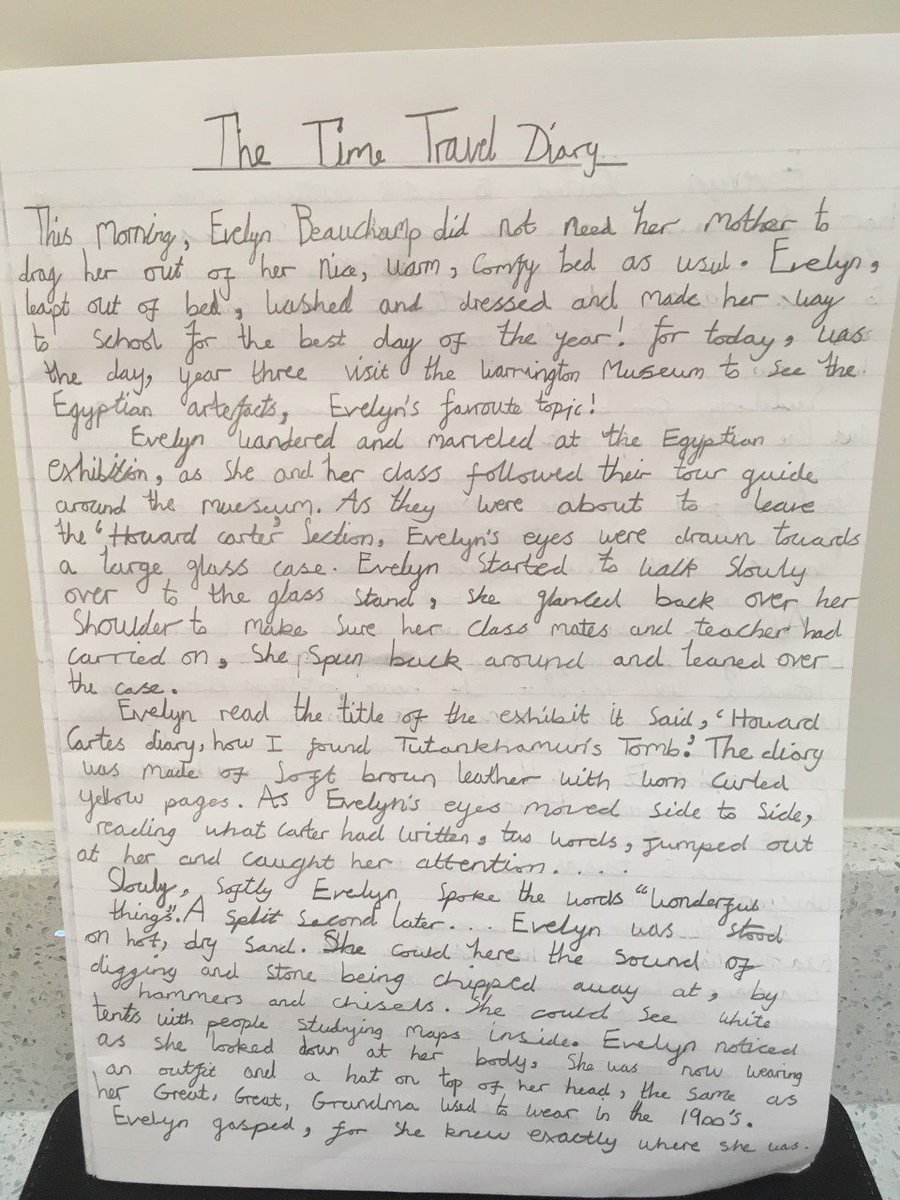 The Time Travel Diary
This Morning, Evelyn Beauchamp did not need her mother to
drag her out of her nice, warm, comfy bed as usul. Evelyn,
leapt out of bed, washed and dressed and made her way
to school for the best day of the year! for today, was
the day, year three visit the Warrington Museum to see the
Egyptian artefacts, Evelyn's favroute topic!
Evelyn wandered and marveled at the Egyptian
exhibition, as she and her class followed their tour guide
around the mueseum. As they were about to leave
the 'Howard carter' Section, Evelyn's eyes were drawn towards
a large glass case. Evelyn started to walk slowly
over to the glass stand, she glanced back over her
Shoulder to make sure her class mates and teacher had
carried on, she spun back around and leaned over
the case.
Evelyn read the title of the exhibit it said, 'Howard
Cartes diary, how I found Tutankhamun's Tomb.' The diary
was made of soft brown leather with worn curled
yellow pages. As Evelyn's eyes moved side to side,
reading what Carter had written, two words, jumped out
at her and caught her attention....
Slowly, softly Evelyn spoke the words "wonderfus
things". A split second later... Evelyn was stood
on hot, dry sand. She could here the sound of
digging and stone being chipped away at, by
hammers and chisels. She could see white
tents with people studying maps inside. Evelyn noticed
as she looked down at her body, she was now wearing
an outfit and a hat on top of her head, the same as
her Great, Great, Grandma used to wear in the 1900's.
Evelyn gasped, for she knew exactly where she was.